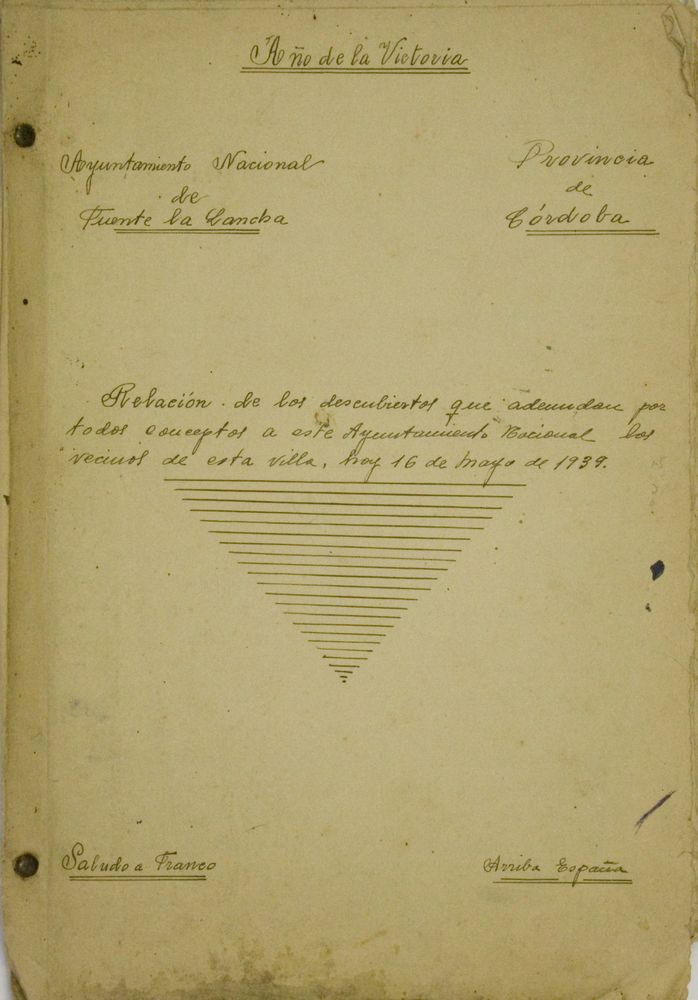 Año de la Victoria
Ayuntamiento Nacional
de
Fuente la Lancha
Provincia
de
Córdoba
Relación de los descubiertos que adeudan por
todos conceptos a este Ayuntamiento Nacional los
vecinos de esta villa, hoy 16 de Mayo de 1939.
Saludo a Franco
Arriba España